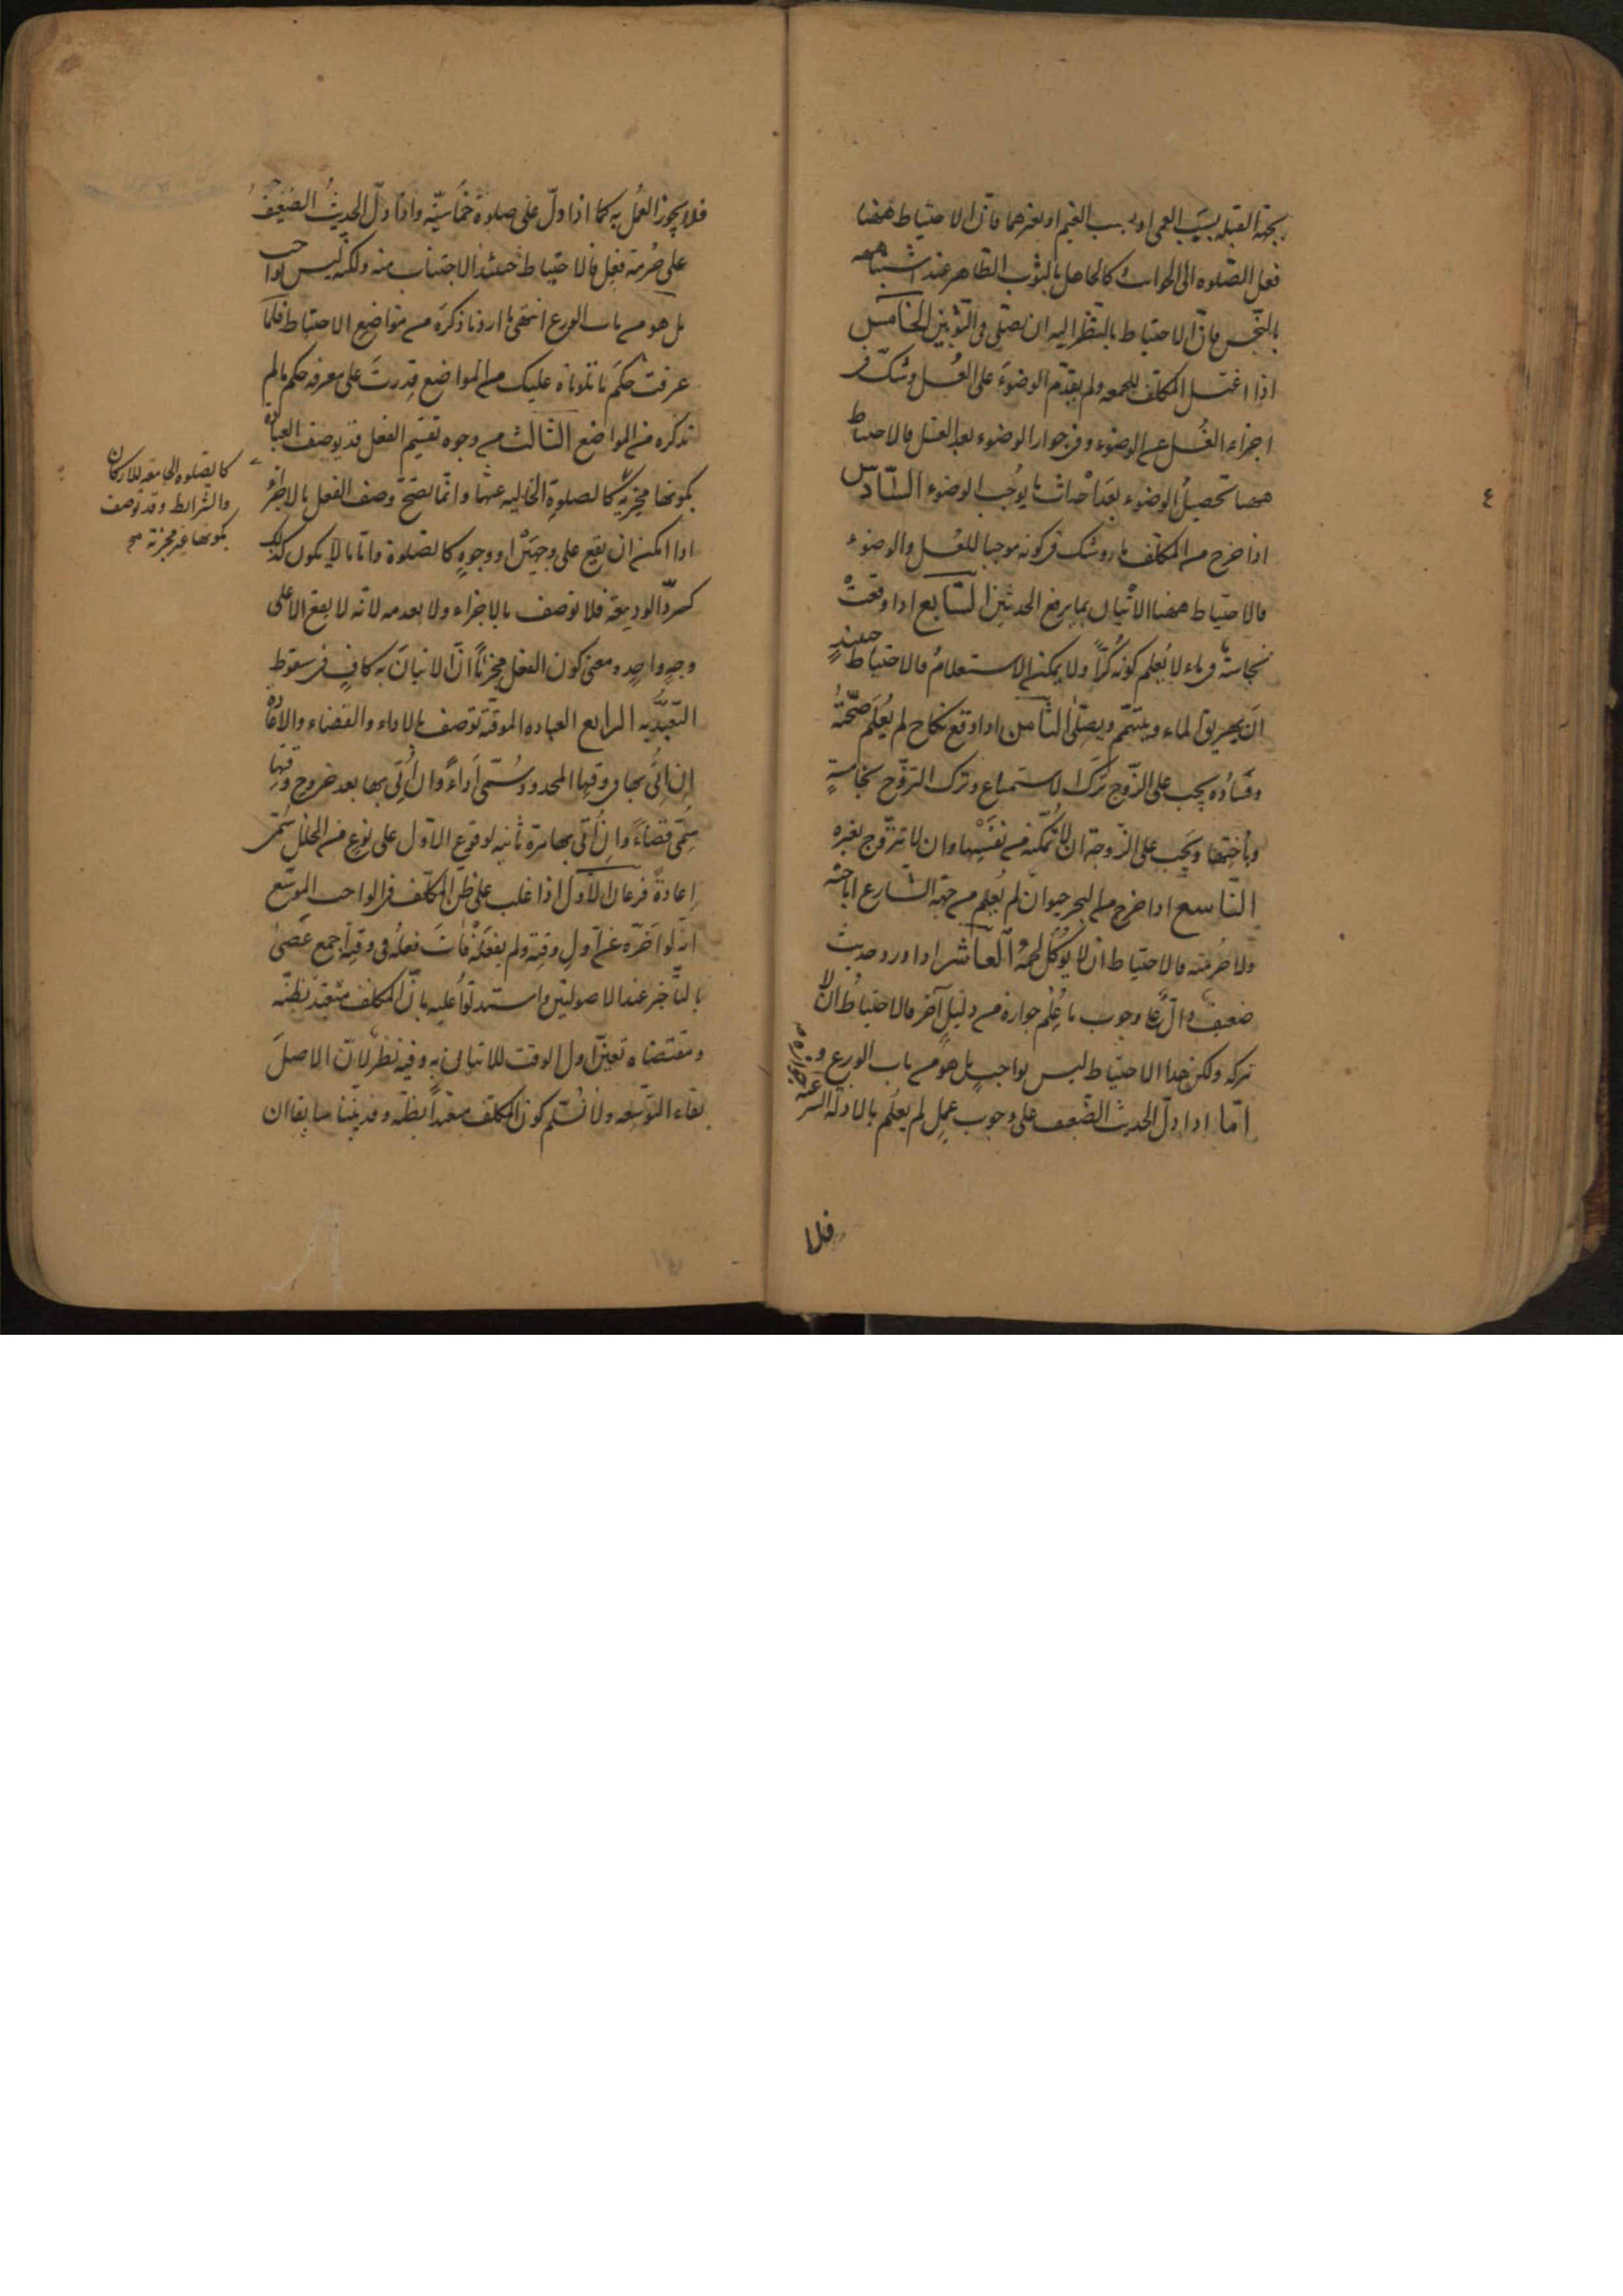 بجهة القبلة بسبب العمى او بسبب الغيم او بغيرهما فان الاحتياط ههنا
فعل الصلوة الى الجوانب كالجاهل بالثوب الطاهر عند اشتباهه
بالنجس فان الاحتياط بالنظر اليه ان يصلى فى الثوبين الخامس
اذا اغتسل المكلف للجمعه ولم يقدم الوضوء على الغسل وشك فى
اجزاء الغسل عن الوضوء وفى جواز الوضوء بعد الغسل فالاحتياط
ههنا تحصيل الوضوء بعد احداث ما يوجب الوضوء السادس
اذا خرج من المكلف ما وشك فى كونه موجبا للغسل والوضوء
فالاحتياط ههنا الاتيان بما يرفع الحدثين السابع اذا وقعت
نجاسة فى ماء لا يعلم كونه كرا ولا يمكنه الاستعلام فالاحتياط حينئذ
ان يهريق الماء ويتيمم ويصلى الثامن اذا وقع نكاح لم يعلم صحته
وفساده يجب على الزوج ترك الاستمتاع وترك التزوج بخامسة
وباختها ويجب على الزوجة ان لا تمكنه من نفسها وان لا تتزوج بغيره
التاسع اذا خرج من البحر حيوان لم يعلم من جهة الشارع اباحته
ولا حرمته فالاحتياط ان لا يؤكل لحمه العاشر اذا ورد حديث
ضعيف دال على وجوب ما علم جوازه من دليل آخر فالاحتياط ان لا
تركه ولكن هذا الاحتياط ليس بواجب بل هو من باب الورع و
اما اذا دل الحديث الضعيف على وجوب عمل لم يعلم بالادلة الشرعية
جوازه
فلا
٤
فلا يجوز العمل به كما اذا دل على صلوة خماسية واذا دل الحديث الضعيف
على حرمة فعل فالاحتياط حينئذ الاجتناب منه ولكنه ليس بواجب
بل هو من باب الورع انتهى ما اردنا ذكره من مواضع الاحتياط فلما
عرفت حكم ما تلوناه عليك من المواضع قدرت على معرفة حكم ما لم
نذكره من المواضع الثالث من وجوه تقسيم الفعل قد يوصف العبادة
بكونها مجزية كالصلوة الخالية عنها وانما يصح وصف الفعل بالاجزاء
اذا امكن ان يقع على وجهين او وجوه كالصلوة واما ما لا يكون كذلك
كرد الوديعة فلا توصف بالاجزاء ولا بعدمه لانه لا يقع الا على
وجه واحد ومعنى كون الفعل مجزئا ان الاتيان به كاف فى سقوط
التعبد به الرابع العبادة الموقتة توصف بالاداء والقضاء والاعادة
ان اتى بها فى وقتها المحدود سمى اداء وان اتى بها بعد خروج وقتها
سمى قضاء وان اتى بها مرة ثانية لوقوع الاول على نوع من الخلل سمى
اعادة فرعان الاول اذا غلب على ظن المكلف فى الواجب الموسع
انه لو اخره عن اول وقته ولم يفعله فات فعله فى وقته اجمع عصى
بالتاخير عند الاصوليين واستدلوا عليه بان المكلف متعبد بظنه
ومقتضاه تعين اول الوقت للاتيان به وفيه نظر لان الاصل
بقاء التوسعه ولا نسلم كون المكلف متعبدا بظنه وقد بينا سابقا ان
كالصلوه الجامعه للاركان
والشرايط وقد توصف
بكونها غير مجزئة صح